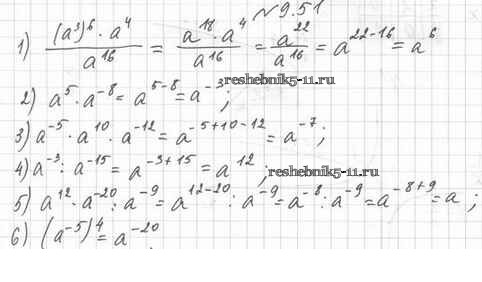 №9.51
1) (a³)⁶ · a⁴ / a¹⁶ = a¹⁸ · a⁴ / a¹⁶ = a²² / a¹⁶ = a²²⁻¹⁶ = a⁶
reshebnik5-11.ru
2) a⁵ · a⁻⁸ = a⁵⁻⁸ = a⁻³;
3) a⁻⁵ · a¹⁰ · a⁻¹² = a⁻⁵⁺¹⁰⁻¹² = a⁻⁷;
4) a⁻³ : a⁻¹⁵ = a⁻³⁺¹⁵ = a¹²;
reshebnik5-11.ru
5) a¹² · a⁻²⁰ : a⁻⁹ = a¹²⁻²⁰ : a⁻⁹ = a⁻⁸ : a⁻⁹ = a⁻⁸⁺⁹ = a;
6) (a⁻⁵)⁴ = a⁻²⁰